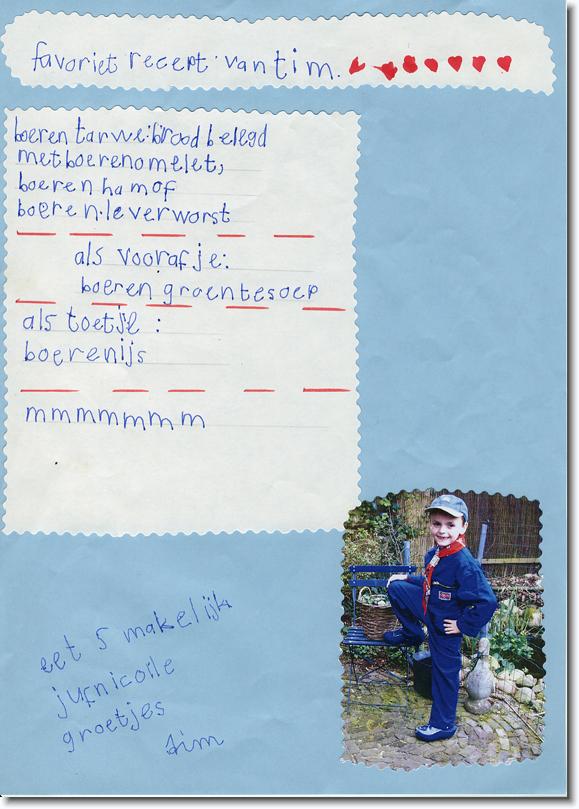 favoriet recept van tim.
boeren tarwe brood belegd
met boerenomelet,
boeren ham of
boeren leverworst
als voorafje:
boeren groentesoep
als toetje :
boerenijs
mmmmmmm
eet smakelijk
juf nicolle
groetjes
tim